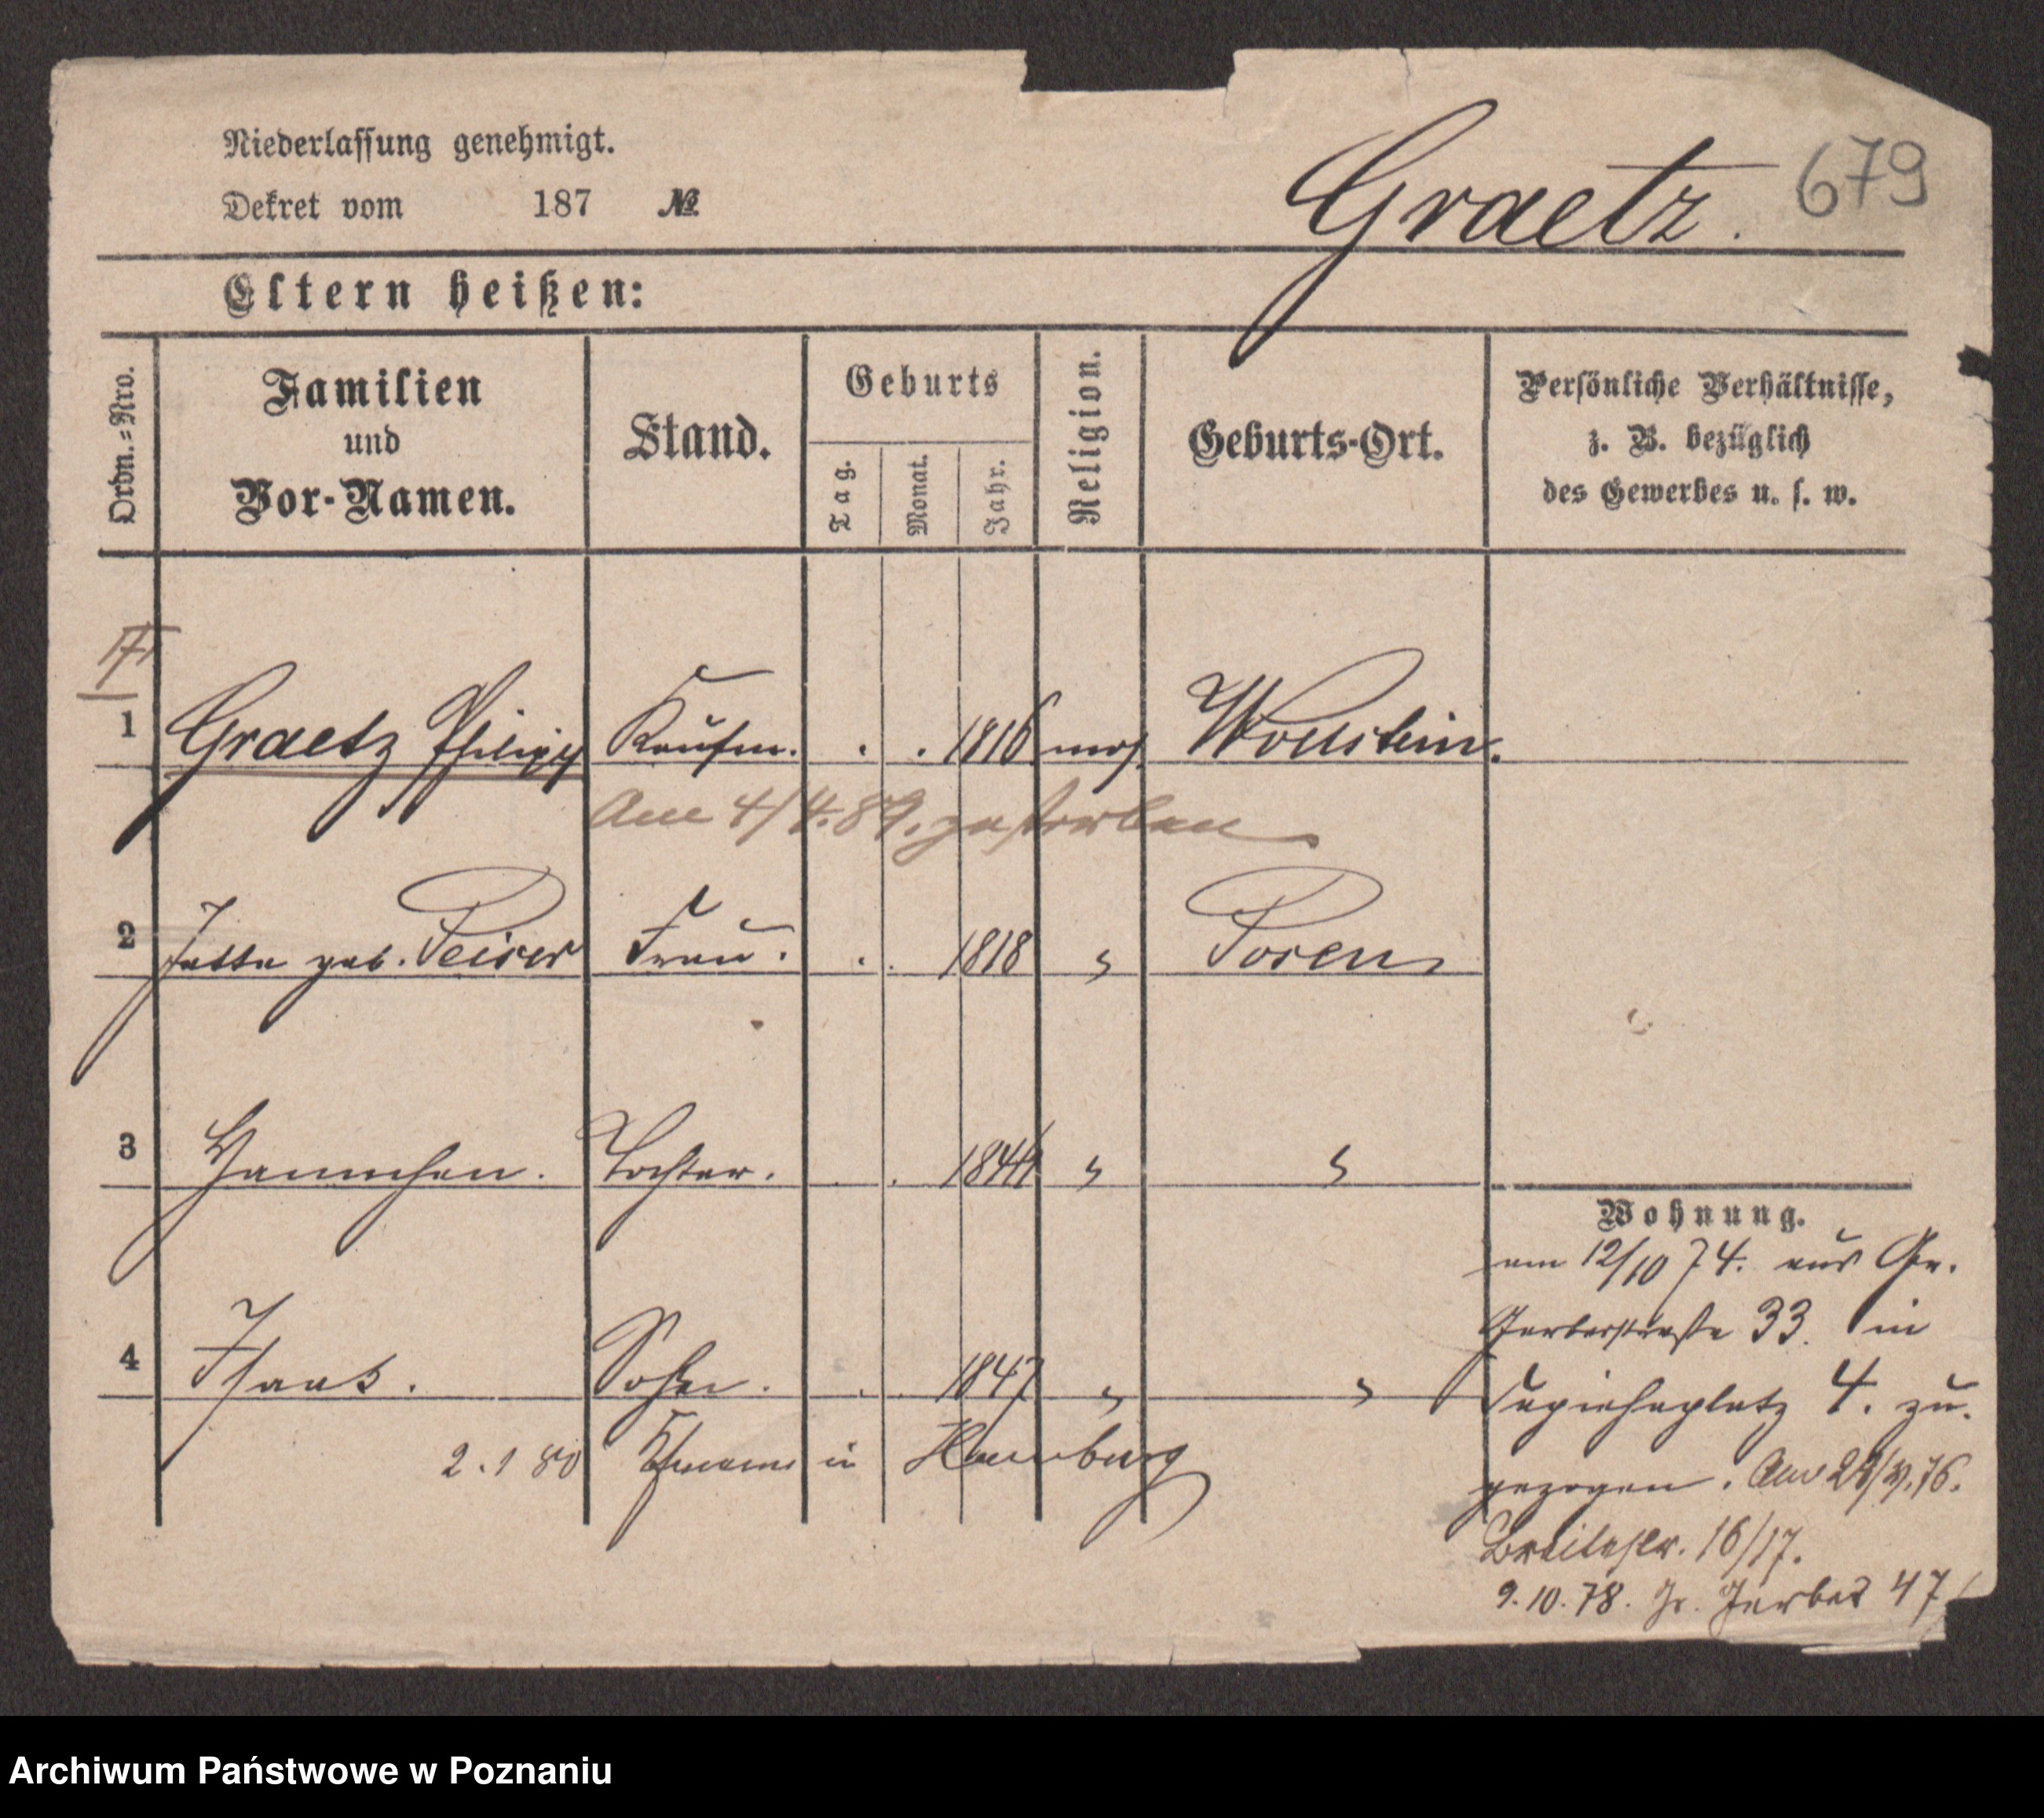 Niederlassung genehmigt.
Dekret vom 187 №
Graetz. 679
Eltern heißen:
Ordn.=Nro.
Familien und Vor-Namen.
Stand.
Geburts
Tag.
Monat.
Jahr.
Religion.
Geburts-Ort.
Persönliche Verhältnisse,
z. B. bezüglich
des Gewerbes u. s. w.
1 Graetz Philipp Kaufm. . . 1816 mos. Wollstein.
Am 4/4.89. gestorben
2 Jette geb. Peiser Frau. . . 1818 " Posen
3 Hannchen. Tochter. . . 1844 " "
4 Isaak. Sohn. . . 1847 " "
2.1 80 Kfmann in Hamburg
Wohnung.
am 12/10 74. aus Gr.
Gerberstraße 33. in
Sapiehaplatz 4. zu.
gezogen. Am
Breitestr. 16/17.
9.10.78. Gr. Gerber 47
Archiwum Państwowe w Poznaniu